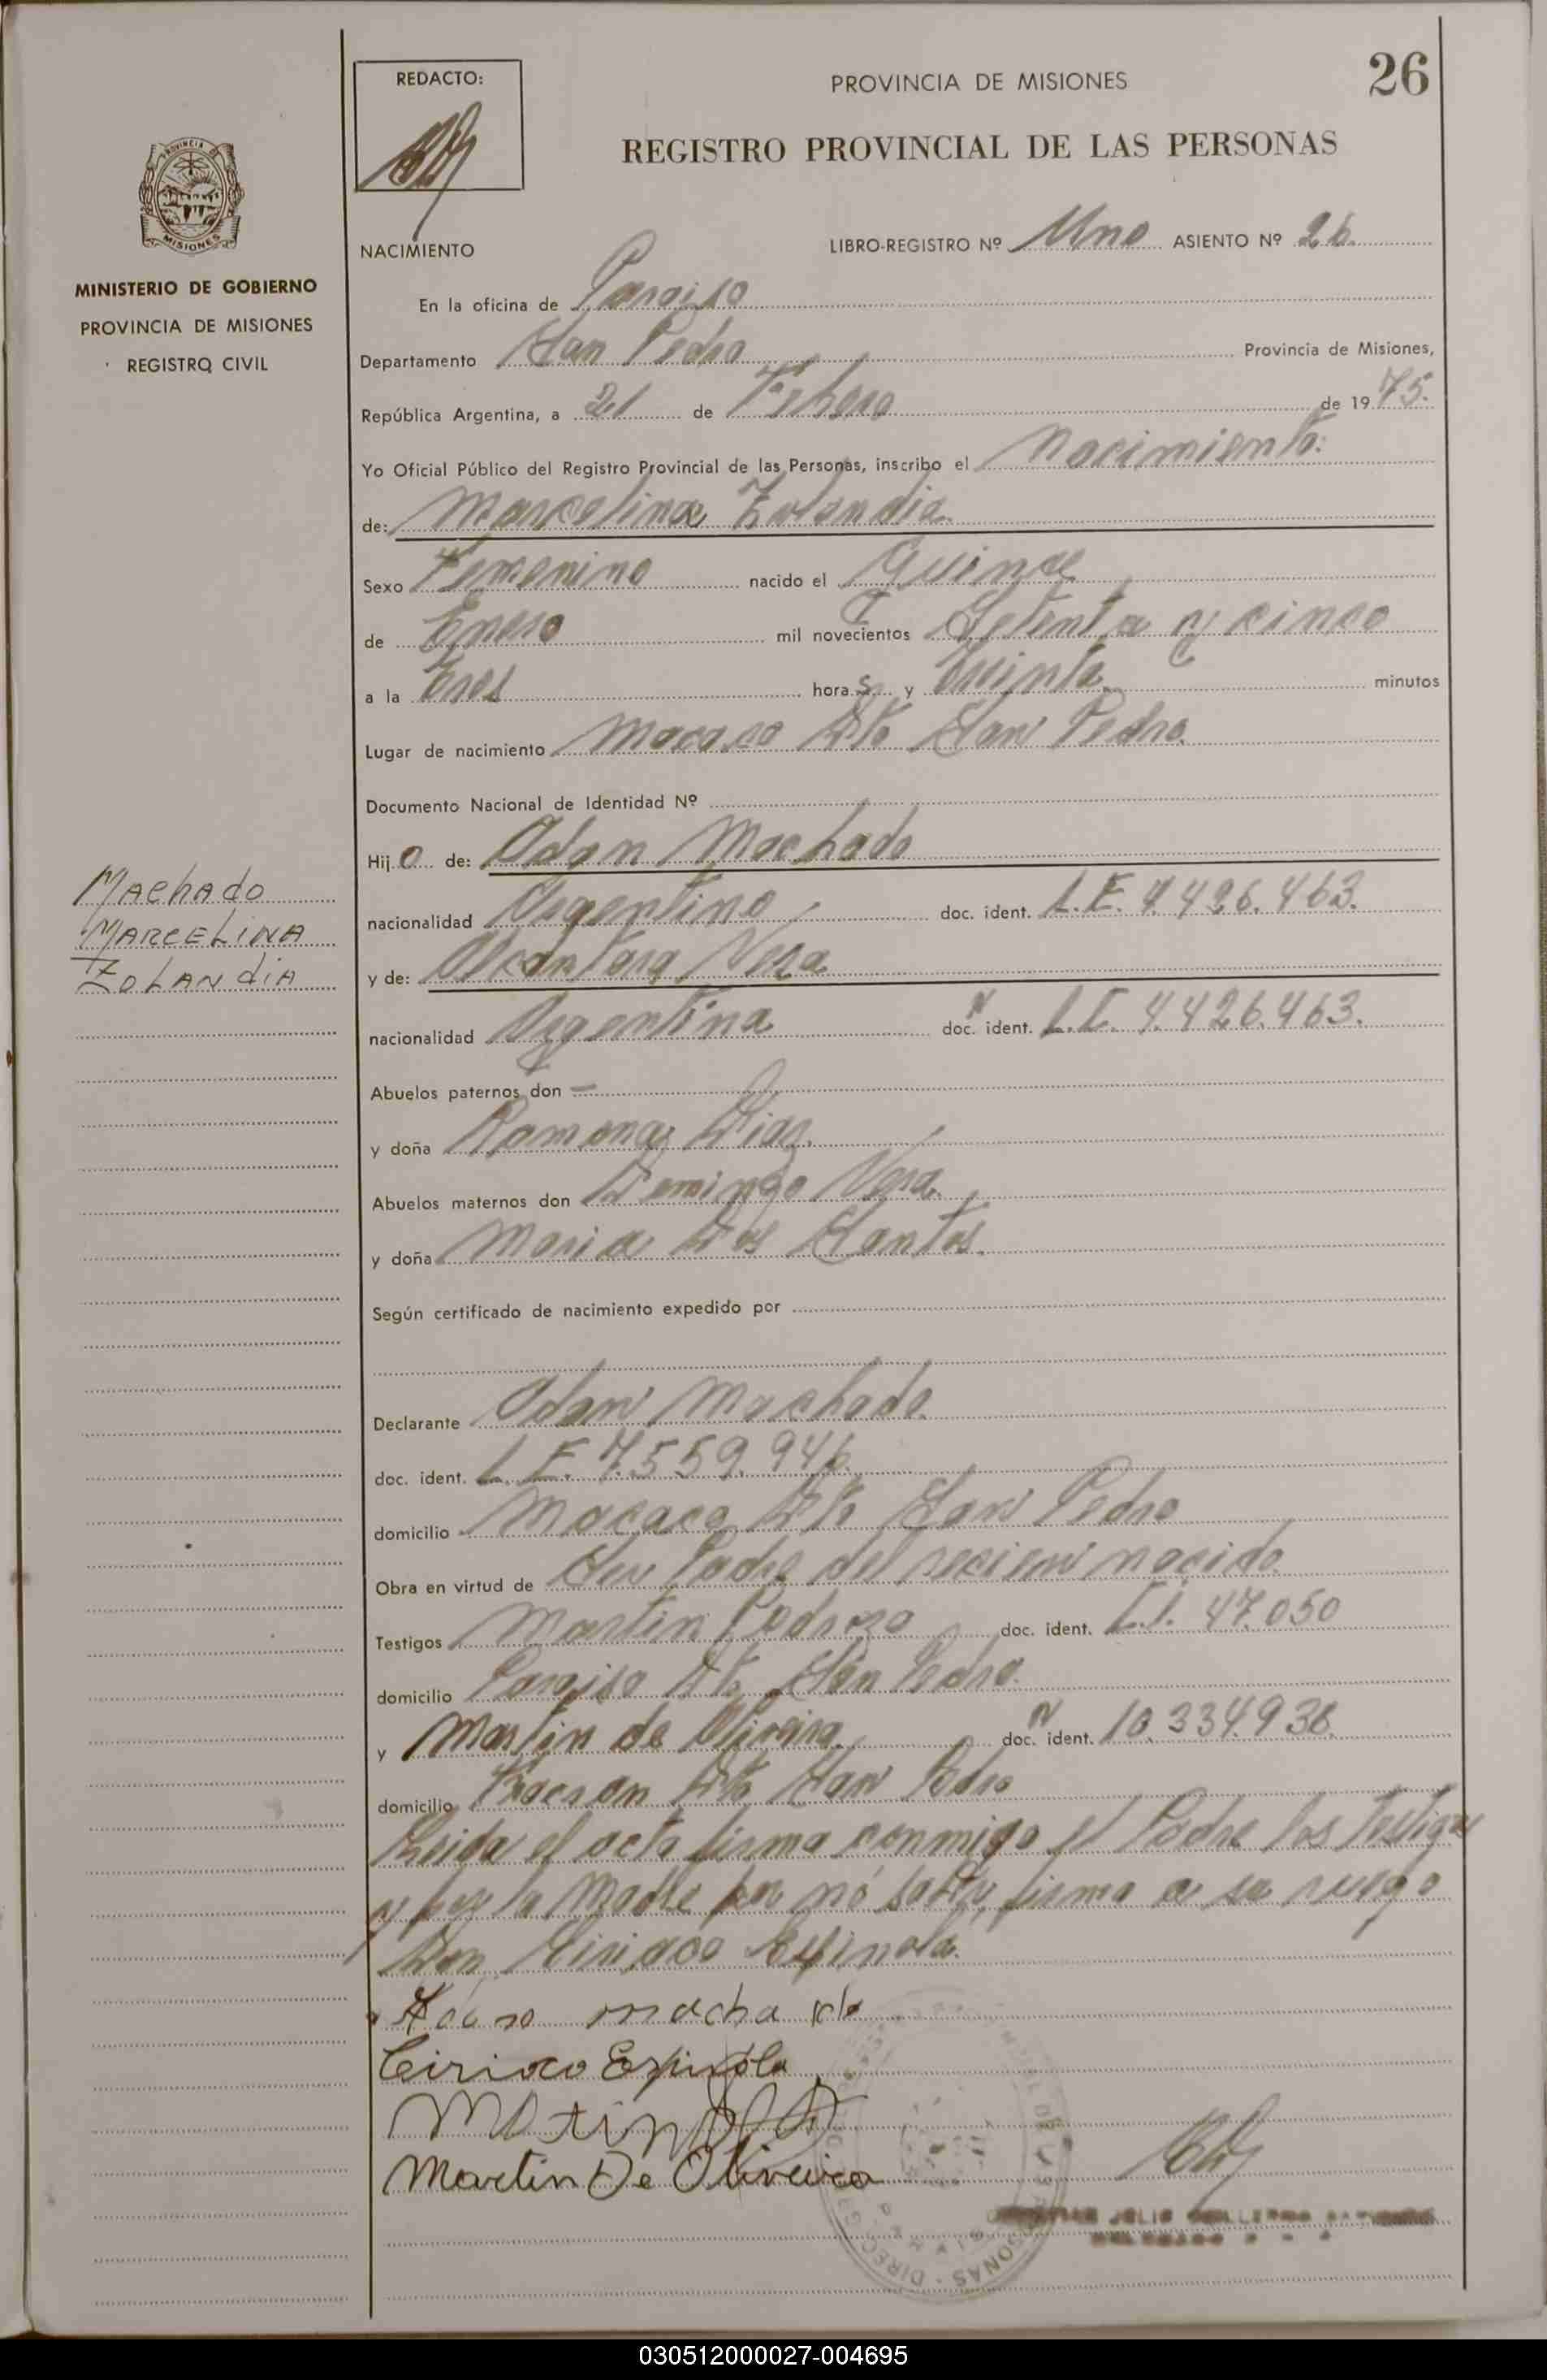 REDACTO:
PROVINCIA DE MISIONES
26
REGISTRO PROVINCIAL DE LAS PERSONAS
PROVINCIA DE
MISIONES
MINISTERIO DE GOBIERNO
PROVINCIA DE MISIONES
REGISTRO CIVIL
NACIMIENTO
LIBRO-REGISTRO Nº Uno ASIENTO Nº 26.
En la oficina de Paraiso
Departamento San Pedro Provincia de Misiones,
República Argentina, a 21 de Febrero de 1975.
Yo Oficial Público del Registro Provincial de las Personas, inscribo el Nacimiento:
de: Marcelina Zolandia
Sexo Femenino nacido el Quince
de Enero mil novecientos Setenta y cinco
a la tres horas y treinta minutos
Lugar de nacimiento Macaco Dto San Pedro.
Documento Nacional de Identidad Nº
Hijo de: Adan Machado
nacionalidad Argentino doc. ident. L.E. 4.426.463.
y de: Alcantara Vera
nacionalidad Argentina doc. ident. L.C. 4.426.463.
Abuelos paternos don —
y doña Ramona Diaz.
Abuelos maternos don Domingo Vera.
y doña Maria Dos Santos.
Según certificado de nacimiento expedido por
Declarante Adan Machado.
doc. ident. L.E. 7.559.946.
domicilio Macaco Dto San Pedro
Obra en virtud de Ser Padre del recien nacido.
Testigos Martin Pedrozo doc. ident. C.I. 47.050
domicilio Paraiso Dto San Pedro.
y Martin de Oliveira doc. ident. 10.334.936.
domicilio Dto San Pedro
Leida el acta firma conmigo el Padre los Testigos
y por la Madre por nó saber, firma a su ruego
Don Ciriaco Espinola.
Machado
MARCELINA
ZOLANDIA
Adan machado
Ciriaco Espinola
Martin
Martin De Oliveira
JULIO GUILLERMO
030512000027-004695